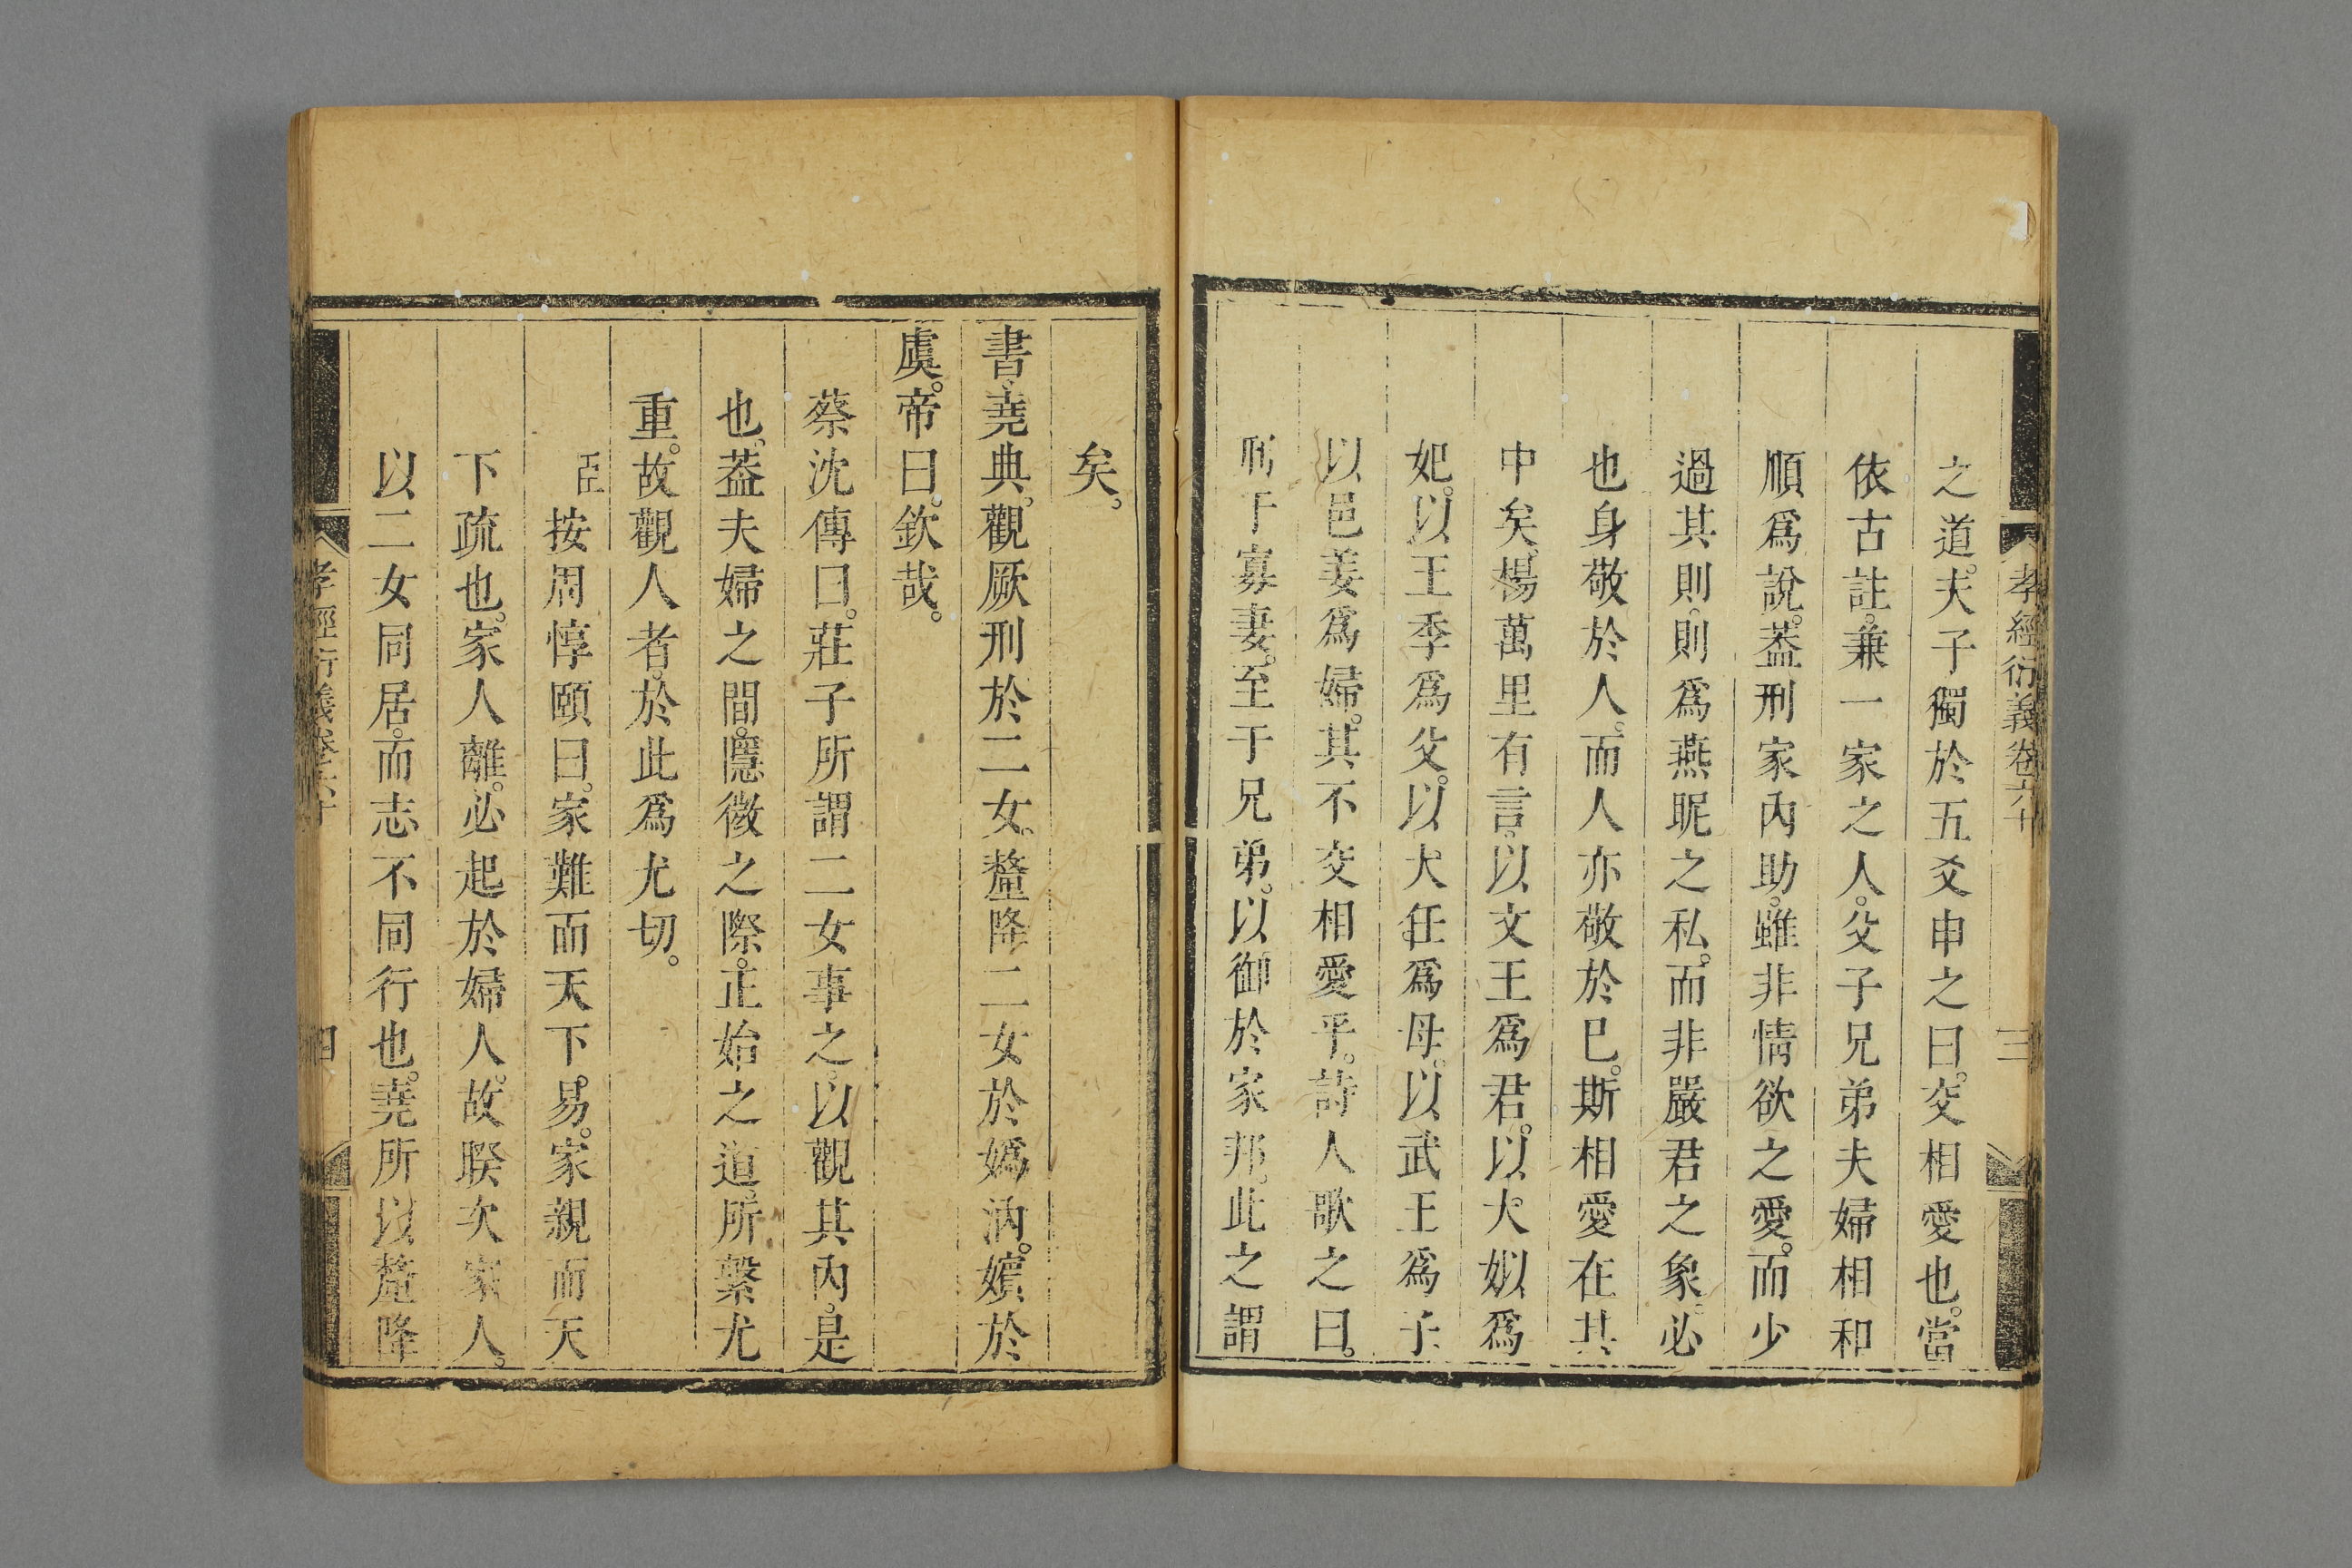 孝經衍義卷六十
三
之道。夫子獨於五爻申之曰。交相愛也。當
依古註。兼一家之人。父子兄弟夫婦相和
順爲說。葢刑家內助。雖非情欲之愛。而少
過其則。則爲燕昵之私。而非嚴君之象。必
也身敬於人。而人亦敬於已。斯相愛在其
中矣。楊萬里有言。以文王爲君。以大姒爲
妃。以王季爲父。以大任爲母。以武王爲子
以邑姜爲婦。其不交相愛乎。詩人歌之曰。
刑于寡妻。至于兄弟。以御於家邦。此之謂
矣。
書堯典。觀厥刑於二女。釐降二女於嬀汭。嬪於
虞。帝曰。欽哉。
蔡沈傳曰。莊子所謂二女事之。以觀其內。是
也。葢夫婦之間。隱微之際。正始之道。所繫尤
重。故觀人者。於此爲尤切。
臣按周惇頤曰。家難而天下。易。家親而天
下疏也。家人離。必起於婦人。故睽次家人。
以二女同居。而志不同行也。堯所以釐降
孝經衍義卷六十
四